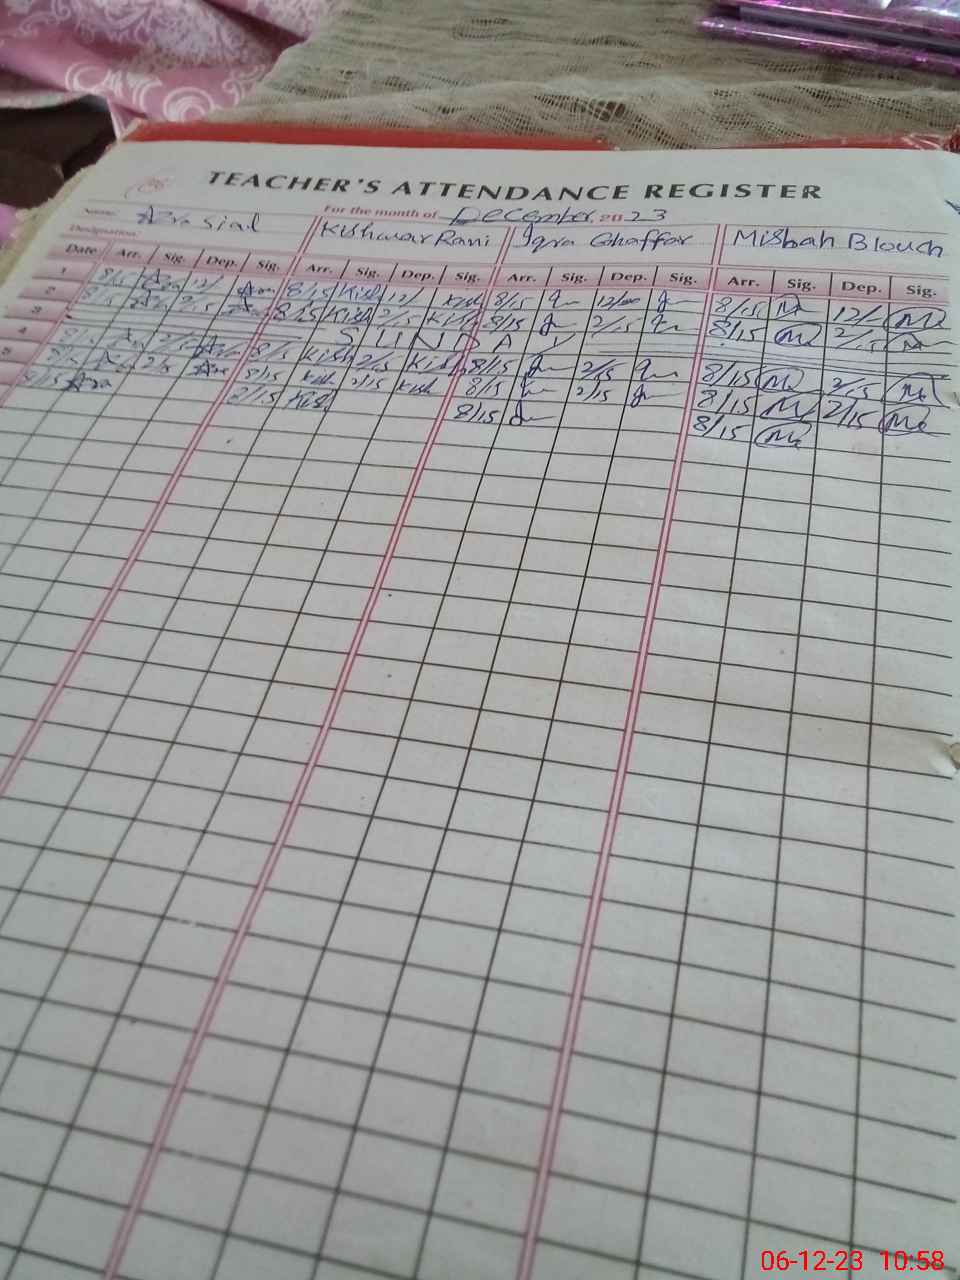 TEACHER'S ATTENDANCE REGISTER
Name: Azra Sial For the month of December 2023
Designation: Kishwar Rani Iqra Ghaffar Misbah Blouch
Date Arr. Sig. Dep. Sig. Arr. Sig. Dep. Sig. Arr. Sig. Dep. Sig. Arr. Sig. Dep. Sig.
1 8/15 Azra 12/ Azra 8/15 Kish 12/ Kish 8/15 12/00 8/15 12/
2 8/15 Azra 2/15 Azra 8/15 Kish 2/15 Kish 8/15 2/15 8/15 2/15
3 SUNDAY
4 8/15 Azra 2/15 Azra 8/15 Kish 2/15 Kish 8/15 2/15 8/15 2/15
5 8/15 Azra 2/15 Azra 8/15 Kish 2/15 Kish 8/15 2/15 8/15 2/15
8/15 Azra 8/15 Kish 8/15 8/15
06-12-23 10:58